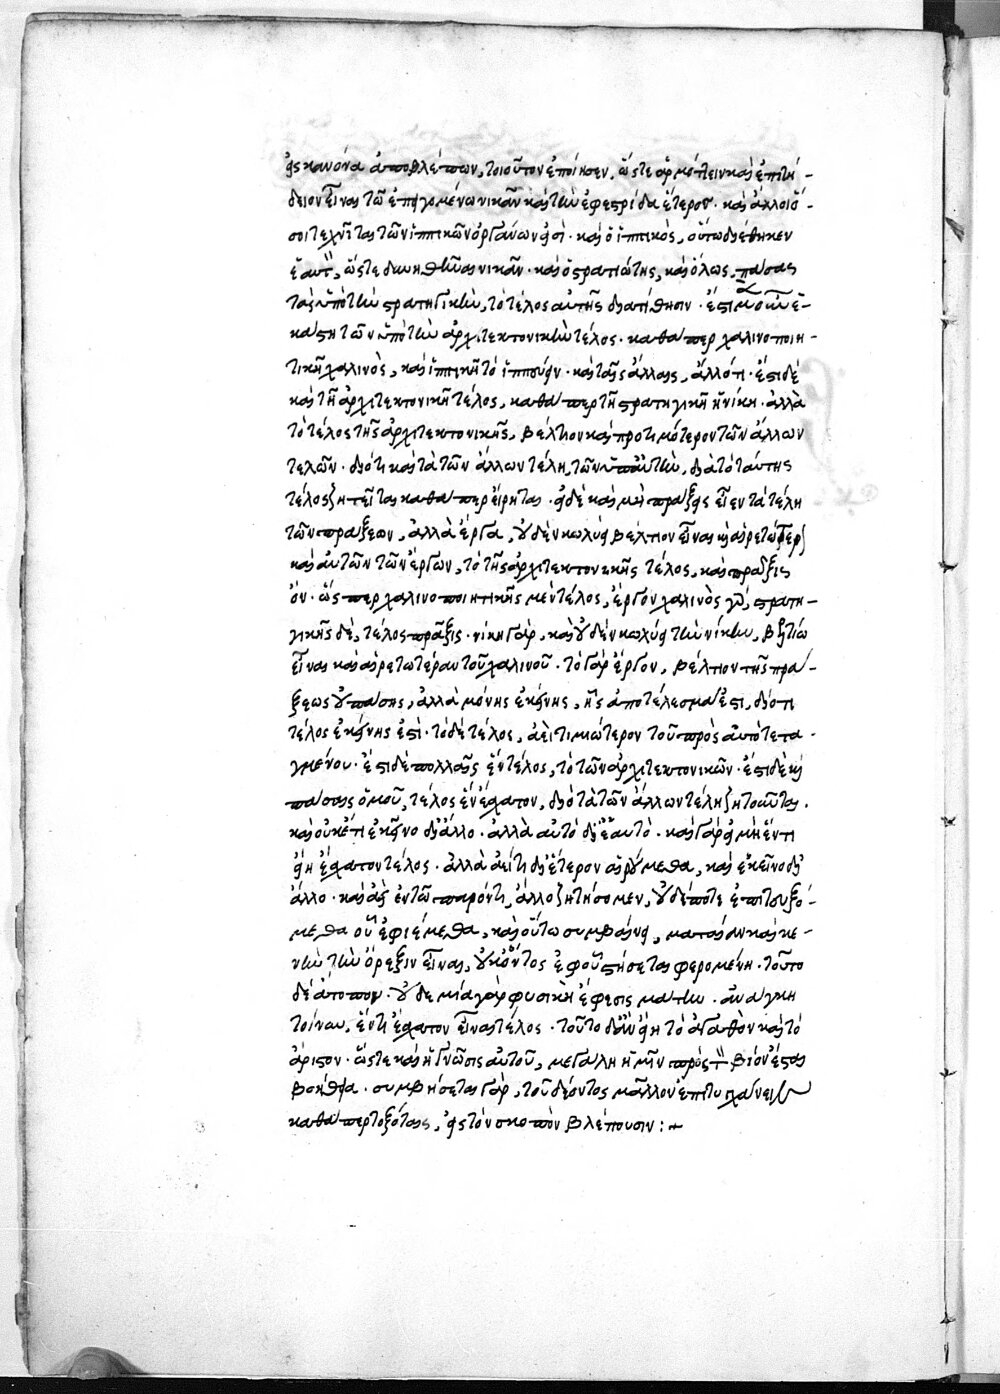 εἰς κανόνα ἀποβλέπων, τοιοῦτον ἐποίησεν, ὥστε ἁρμόττειν καὶ ἐπιτή-
δειον εἶναι τῶ ἐπαγομένω νικᾶν κατὰ τὴν ἐφεστρίδα ἕτερον. καὶ ἄλλοι ὅ-
σοι τεχνῖται τῶν ἱππικῶν ὀργάνων εἰσὶ. καὶ ὁ ἱππικὸς, οὕτω διέθηκεν
ἑαυτὸν, ὥστε δυνηθῆναι νικᾶν. καὶ ὁ στρατιώτης, καὶ ὅλως, πάσας
τὰς ὑπὸ τὴν στρατηγικὴν, τὸ τέλος αὐτῆς διατίθησιν. ἔστι μὲν οὖν ἑ-
κάστη τῶν ὑπὸ τὴν ἀρχιτεκτονικὴν τέλος. καθάπερ χαλινοποιη-
τικῆ χαλινὸς, καὶ ἱππικῆ τὸ ἱππεύειν. καὶ ταῖς ἄλλαις, ἄλλό τι. ἔστι δὲ
καὶ τῆ ἀρχιτεκτονικῆ τέλος, καθάπερ τῆ στρατηγικῆ ἡ νίκη. ἀλλὰ
τὸ τέλος τῆς ἀρχιτεκτονικῆς, βέλτιον καὶ προτιμότερον τῶν ἄλλων
τελῶν. διότι καὶ τὰ τῶν ἄλλων τέλη, τῶν ὑπ' αὐτὴν, διὰ τὸ ταύτης
τέλος ζητεῖται καθάπερ εἴρηται. εἰ δὲ καὶ μὴ πράξεις εἶεν τὰ τέλη
τῶν πράξεων, ἀλλὰ ἔργα, οὐδὲν κωλύει βέλτιον εἶναι καὶ αἱρετώτερον
καὶ αὐτῶν τῶν ἔργων, τὸ τῆς ἀρχιτεκτονικῆς τέλος, καὶ πρᾶξις
ὄν. ὥσπερ χαλινοποιητικῆς μὲν τέλος, ἔργον χαλινὸς γὰρ, στρατη-
γικῆς δὲ, τέλος πρᾶξις. νίκη γὰρ, καὶ οὐδὲν κωλύει τὴν νίκην, βελτίω
εἶναι καὶ αἱρετωτέραν τοῦ χαλινοῦ. τὸ γὰρ ἔργον, βέλτιον τῆς πρά-
ξεως οὐ πάσης, ἀλλὰ μόνης ἐκείνης, ἧς ἀποτέλεσμα ἐστι, διότι
τέλος ἐκείνης ἐστὶ. τὸ δὲ τέλος, ἀεὶ τιμιώτερον τοῦ πρὸς αὐτὸ τετα-
γμένου. ἔστι δὲ πολλαῖς ἓν τέλος, τὸ τῶν ἀρχιτεκτονικῶν. ἔστι δὲ καὶ
πάσαις ὁμοῦ, τέλος ἓν ἔσχατον, δι' ὃ τὰ τῶν ἄλλων τέλη ζητοῦνται.
καὶ οὐκέτι ἐκεῖνο δι' ἄλλο. ἀλλὰ αὐτὸ δι' ἑαυτὸ. καὶ γὰρ εἰ μὴ ἔν τι
εἴη ἔσχατον τέλος. ἀλλὰ ἀεί τι δι' ἕτερον αἱρούμεθα, καὶ ἐκεῖνο δι'
ἄλλο. καὶ ἀεὶ ἐν τῶ παρόντι, ἄλλο ζητήσομεν, οὐδέποτε ἐπιτευξό-
μεθα οὗ ἐφιέμεθα, καὶ οὕτω συμβαίνει, ματαίαν καὶ κε-
νὴν τὴν ὄρεξιν εἶναι, οὐκ ὄντος ἐφ' οὗ στήσεται φερομένη. τοῦτο
δὲ ἄτοπον. οὐδεμία γὰρ φυσικὴ ἔφεσις μάτην. ἀνάγκη
τοίνυν, ἕν τι ἔσχατον εἶναι τέλος. τοῦτο δ' ἂν εἴη τὸ ἀγαθὸν καὶ τὸ
ἄριστον. ὥστε καὶ ἡ γνῶσις αὐτοῦ, μεγάλη ἡμῖν πρὸς τὸν βίον ἔσται
βοήθεια. συμβήσεται γὰρ, τοῦ δέοντος μᾶλλον ἐπιτυγχάνειν
καθάπερ τοξόταις, εἰς τὸν σκοπὸν βλέπουσιν :~